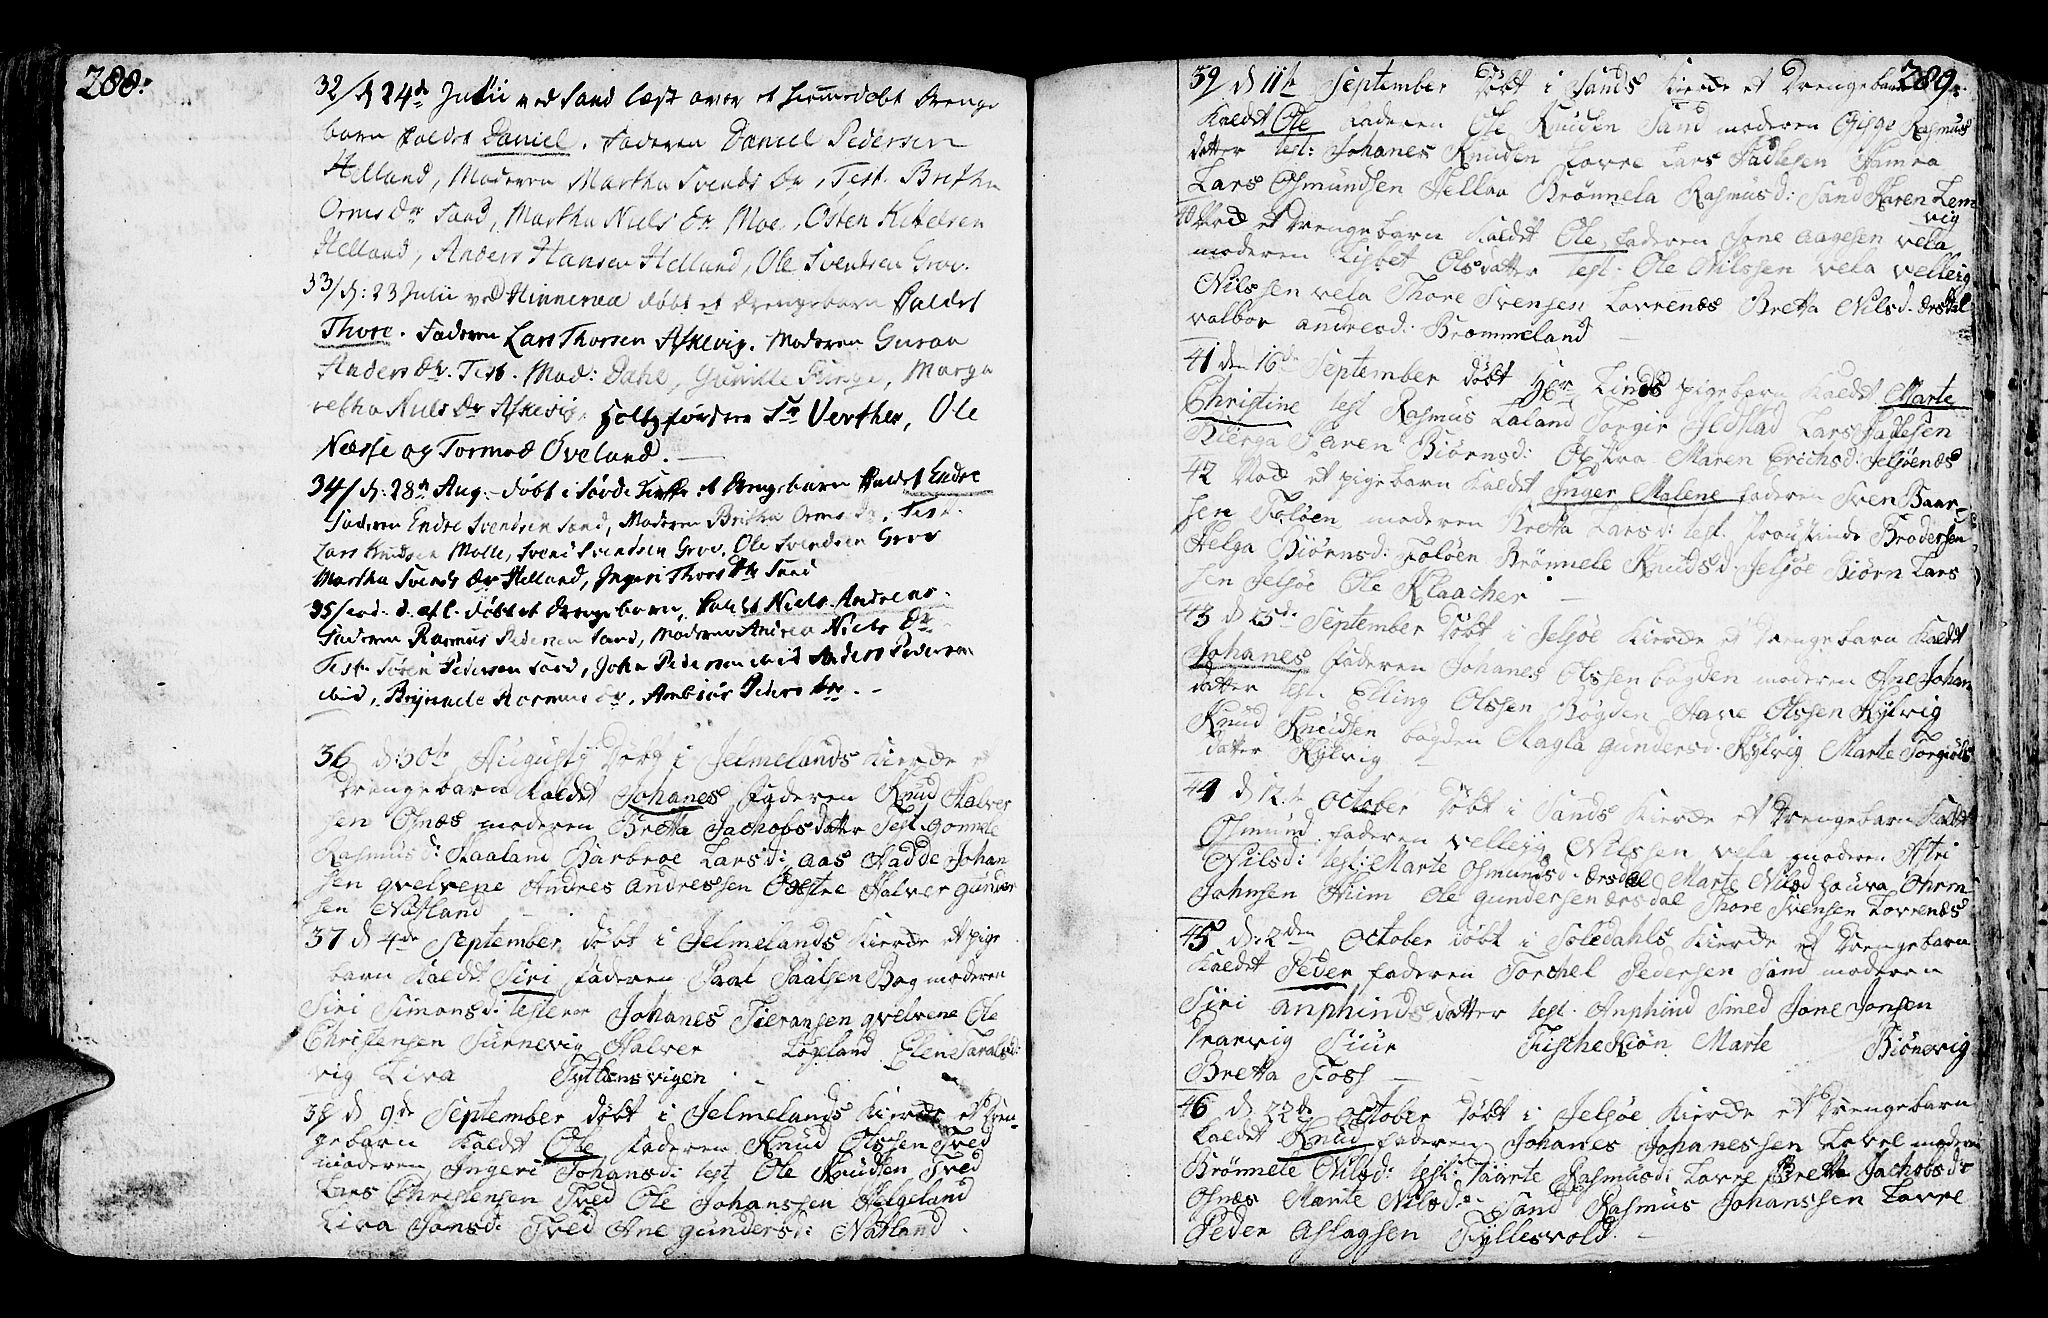 288.
32/ d 24de Julii ved Sand læst over et hiemmedøbt Drenge
barn kaldet Daniel. Faderen Daniel Pedersen
Helland, Moderen Martha Svends Dr, Test. Bretha
Orms Dr Sand, Martha Niels Dr Moe, Osten Ketelsen
Helland, Anders Hansen Helland, Ole Svendsen Grov.
33/ d: 23 Julii ved Hinneraa døbt et Drengebarn kaldet
Thore. Faderen Lars Thorsen Askevig. Moderen Guroa
Anders Dr. Test. Mad: Dahl, Gunille, Marga
retha Niels Dr Askevig, Sr Verther, Ole
Næsse og Tormod Øveland.
34/ d: 28de Aug. døbt i Søvde Kirke et Drengebarn kaldet Endre
Faderen Endre Svendsen Sand, Moderen Britha Orms Dr, Test.
Lars Knudsen Molle, Svend Svendsen Grov, Ole Svendsen Grov
Martha Svends Dr Helland, Ingeri Thors Dr Sand
35/ eod. d. døbt et Drengebarn, kaldt Niels Andreas.
Faderen Rasmus Pedersen Sand, Moderen Andrea Niels Dr
Test. Søren Pedersen Sand, John Pedersen ibid Anders Pedersen
ibid, Rasmus Dr, Ambiør Peders Dr. -
36 d: 30te Augusty Døbt i Jelmelands Kierde et
Drengebarn kaldet Johanes faderen Knud Halver
sen Osnæs moderen Bretta Jachobsdatter Test. Gonnele
Rasmusd: Haaland Barbroe Larsd: aas Hadde Johan
sen qvelvene Andres andressen Østre Halver gunder
sen Natland
37 d 4de September døbt i Jelmelands Kierde et pige
barn kaldet Siri faderen Paal Paalsen Bog moderen
Siri Simonsd: testeror Johanes Tieransen qvelvene Ole
Christensen Surnevig Halver Lopland Elen Taralsd:
vig Liva Tyttensvigen
38 d 9de September døbt i Jelmelands Kierde et Dren-
gebarn kaldet Ole faderen Knud Olssen Tved
moderen Ingeri Johansd: test Ole Knudsen Tved
Lars Christensen Tved Ole Johanssen Helgeland
Liva Jonsd: Tved Ane gundersd: Natland
289.
39 d 11te September Døbt i Sands Kierde et Drengebarn
kaldet Ole faderen Ole Knudsen Sand moderen Rasmus
datter test: Johanes Knudsen Lovre Lars Hamra
Lars Osmundsen Hellaa Brønnela Rasmusd: Sand Karen Lem
vig
40 Nod et Drengebarn kaldet Ole, faderen Jone aagesen vela
moderen Lisbet Olsdatter test: Ole Nilssen vela velleig
Nilssen vela Thore Svensen Lovrenæs Bretta Nilsd. ersdal
valbor andresd: Brommeland
41 den 16de September døbt Hr. Linds pigebarn kaldet Marte
Christine test Rasmus Laland Torgir Ildstad Lars Hadlesen
Bierga Karen Biørnsd: Maren Erichsd. Jelsøenæs
42 Nod et pigebarn kaldet Inger Malene faderen Sven Baar-
sen Foløen moderen Bretta Larsd: test. Proustinde Brodersen
Helga Biørnsd: Foløen Brønnele Knudsd Jelsøe Biørn Lars
sen Jelsøe Ole Klaacher
43 d 25de September Døbt i Jelsøe Kierde et Drengebarn kaldt
Johanes faderen Johanes Olssen bøgden moderen Ane Johans
datter test. Elling Olssen Bøgden Aave Olssen Kylvig
Knud Knudsen bøgden Magla gundersd. Kylvig Marte Torgiuls
datter Kylvig
44 d 12te October Døbt i Sands Kierde et Drengebarn kaldt
Osmund faderen velleig Nilssen vela moderen Atri
Nilsd: test: Marte Osmundsd. ersdal Marte Nilsd houra Orm
Johnsen Hiim Ole gundersen ersdal Thore Svensen Lovrenæs
45 d: 2den October døbt i Soledahls Kierde et Drengebarn
kaldet Peder faderen Torchel Pedersen Sand moderen
Siri anphindsdatter test. Anphind Smed Jone Jonsen
Siur Marte Biønevig
Bretta Foss
46 d 23de October Døbt i Jelsøe Kierde et Drengebarn
kaldet Knud faderen Johanes Johanessen Lovre moderen
Brønnele Nilsd: test: Rasmusd: Lovre Bretta Jachobsd:
Osnæs Marte Nilsd: Sand Rasmus Johanssen Lovre
Peder Aslagsen Fyllesvold.